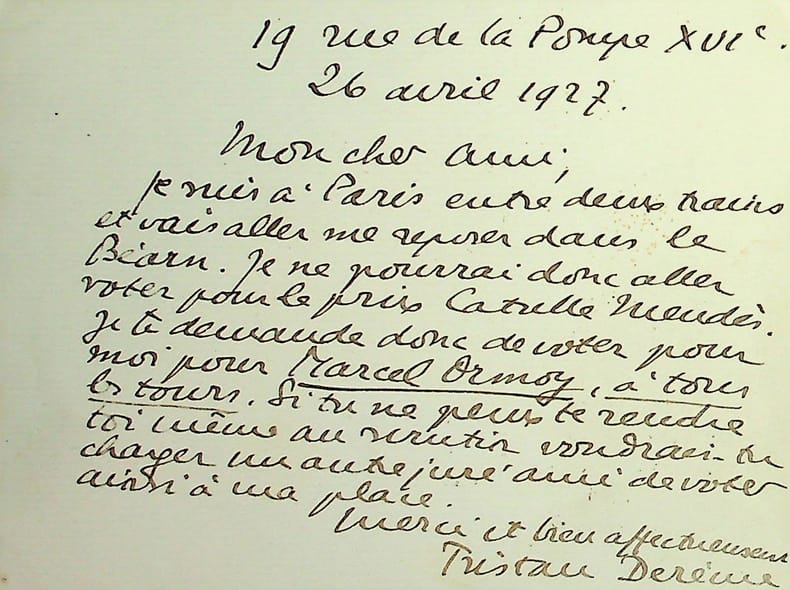 19 rue de la Pompe XVIe.
26 avril 1927.
Mon cher ami,
Je suis à Paris entre deux trains
et vais aller me reposer dans le
Béarn. Je ne pourrai donc aller
voter pour le prix Catulle Mendès.
Je te demande donc de voter pour
moi pour Marcel Ormoy, à tous
les tours. Si tu ne peux te rendre
toi même au scrutin voudrais-tu
charger un autre juré ami de voter
ainsi à ma place.
Merci et bien affectueusement
Tristan Derème